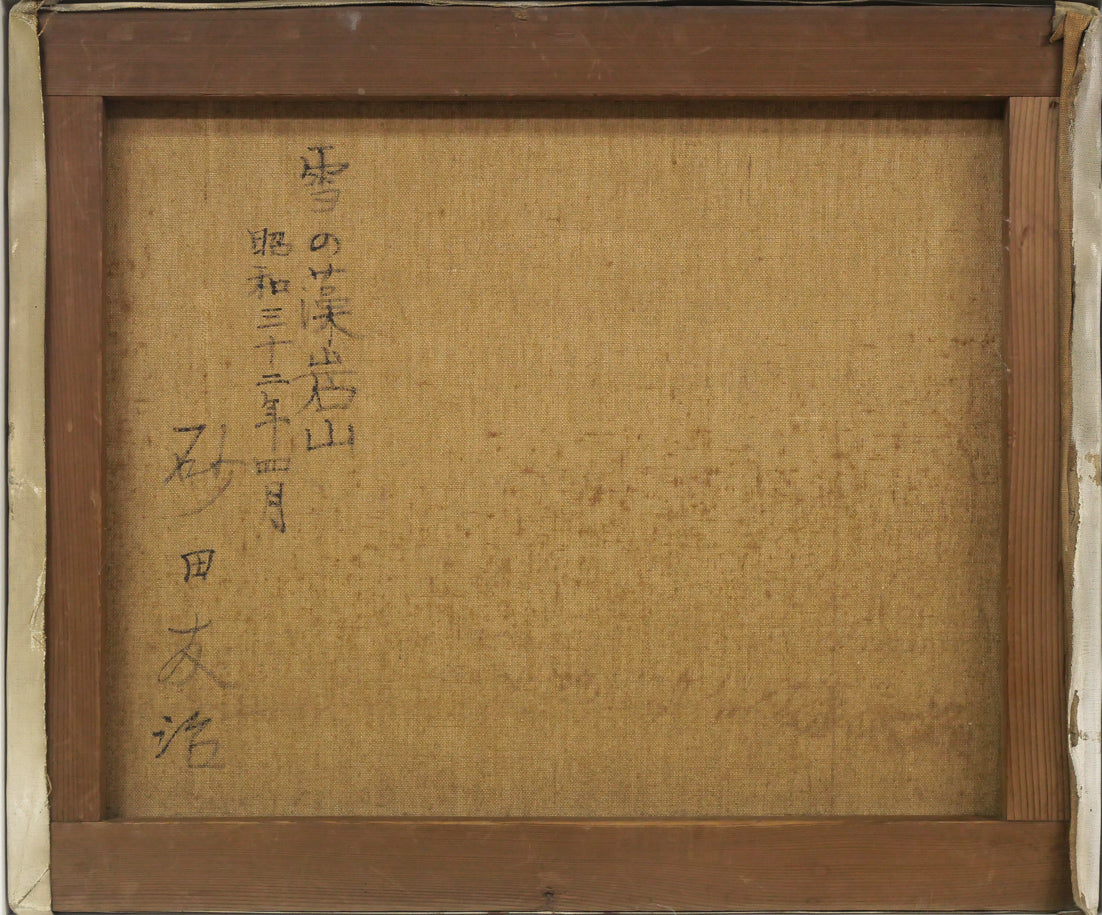 雪の藻岩山
昭和三十二年四月
砂田友治